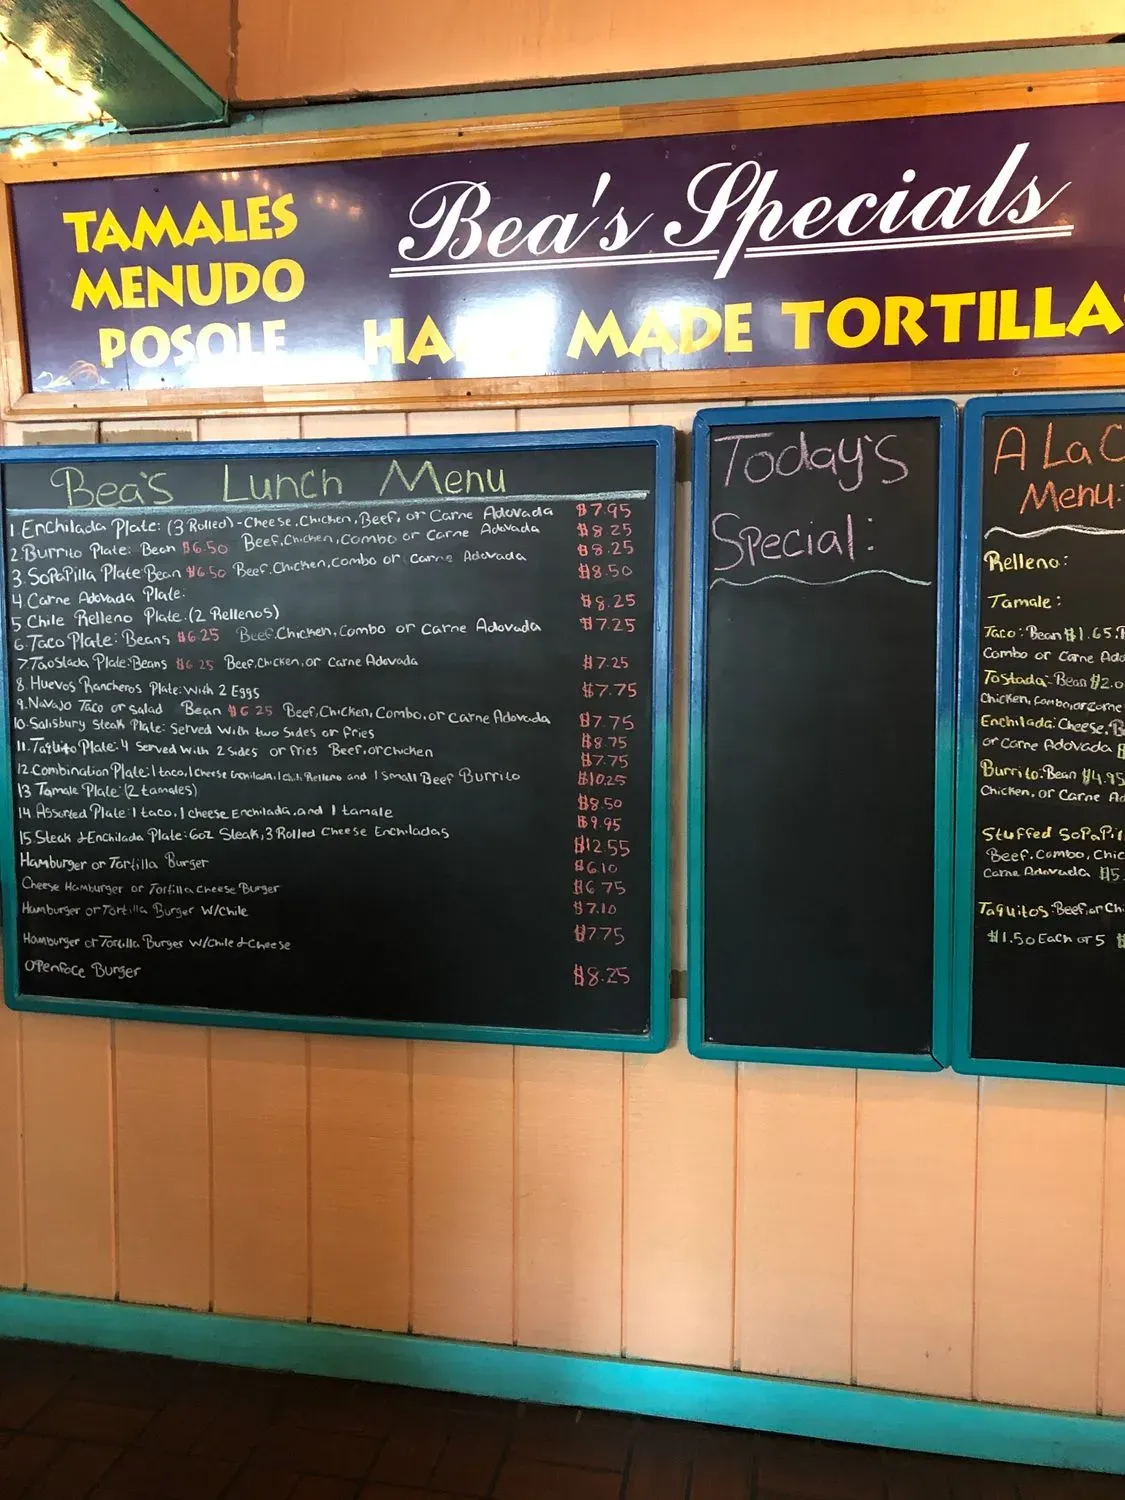 TAMALES
MENUDO
POSOLE
Bea's Specials
MADE TORTILLA
Bea's Lunch Menu
1. Enchilada Plate: (3 Rolled) - Cheese, Chicken, Beef, or Carne Adovada $7.95
2. Burrito Plate: Bean $6.50 Beef, Chicken, Combo or Carne Adovada $8.25
3. SoPaPilla Plate: Bean $6.50 Beef, Chicken, Combo or Carne Adovada $8.25
4. Carne Adovada Plate: $8.50
5 Chile Relleno Plate: (2 Rellenos) $8.25
6. Taco Plate: Beans $6.25 Beef, Chicken, Combo or Carne Adovada $7.25
Plate: Beans $6.25 Beef, Chicken, or Carne Adovada $7.25
8. Huevos Rancheros Plate: With 2 Eggs $7.75
9. Navajo Taco or Salad Bean $6.25 Beef, Chicken, Combo, or Carne Adovada $7.75
10. Salisbury Steak Plate: Served With two Sides or fries $8.75
11. Taquito Plate: 4 Served With 2 Sides or fries Beef, or Chicken $7.75
12. Combination Plate: 1 taco, 1 Cheese Enchilada, 1 Chili Relleno and 1 Small Beef Burrito $10.25
13 Tamale Plate: (2 tamales) $8.50
14. Assorted Plate: 1 taco, 1 cheese Enchilada, and 1 tamale $9.95
15. Steak & Enchilada Plate: 6oz Steak, 3 Rolled Cheese Enchiladas $12.55
Hamburger or Tortilla Burger $6.10
Cheese Hamburger or Tortilla Cheese Burger $6.75
Hamburger or Tortilla Burger W/Chile $7.10
Hamburger or Tortilla Burger W/Chile & Cheese $7.75
Openface Burger $8.25
Today's
Special:
A La C
Menu:
Relleno:
Tamale:
Taco: Bean $1.65,
Combo or Carne Ado
Tostada: Bean $2.0
Chicken, Combo, or Carne
Enchilada: Cheese,
or Carne Adovada
Burrito: Bean $4.95
Chicken, or Carne Ad
Stuffed SoPaPi
Beef, Combo, Chic
Carne Adovada $5.
Taquitos: Beef, or Chi
$1.50 Each or 5